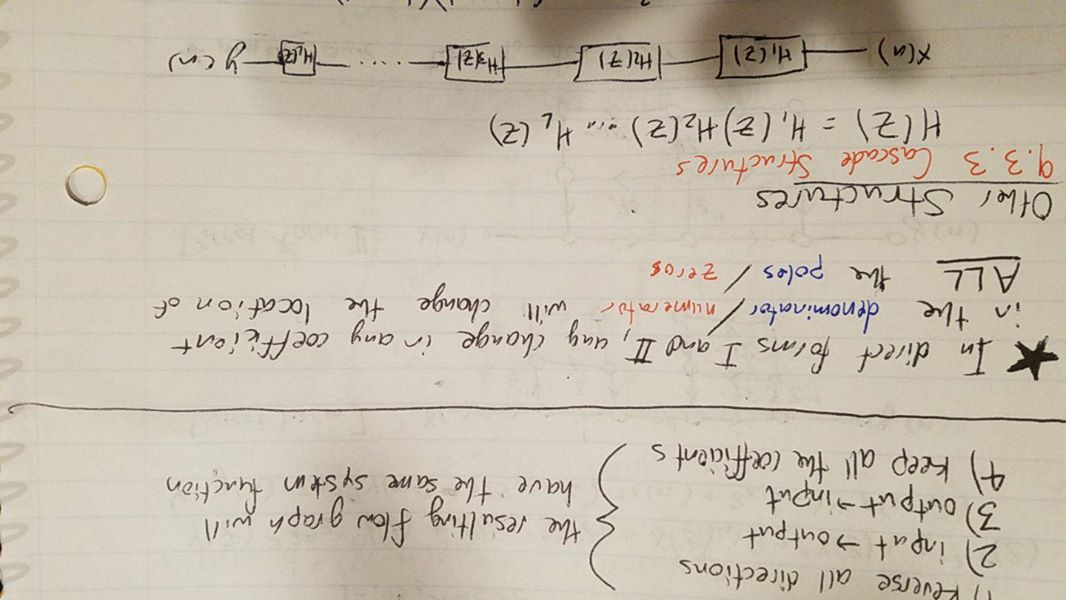 1) Reverse all directions
2) input → output
3) output → input
4) keep all the coefficients
the resulting flow graph will
have the same system function
★ In direct forms I and II, any change in any coefficient
in the denominator/numerator will change the location of
ALL the poles/zeros
Other Structures
9.3.3 Cascade Structures
H(Z) = H₁(Z)H₂(Z) ... H_L(Z)
x(n) H₁(Z) H₂(Z) H₃(Z) ..... H_L(Z) y(n)